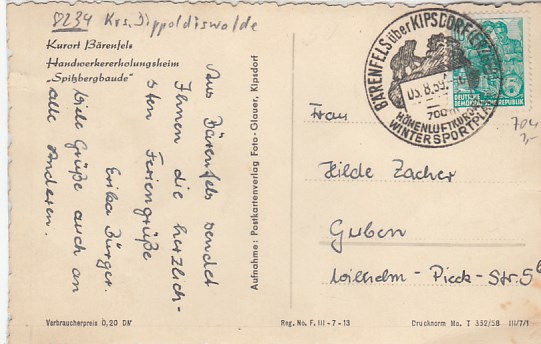 8234 Krs. Dippoldiswalde
Kurort Bärenfels
Handwerkererholungsheim
"Spitzbergbaude"
Aus Bärenfels sendet
Ihnen die herzlich-
sten Feriengrüße
Erika Bürger.
Viele Grüße auch an
alle Anderen.
Aufnahme: Postkartenverlag Foto-Glauer, Kipsdorf
BÄRENFELS über KIPSDORF
03.8.59
700 m
HÖHENLUFTKURORT
WINTERSPORTPLATZ
DEUTSCHE
DEMOKRATISCHE REPUBLIK
Frau
Hilde Zacher
Guben
Wilhelm-Pieck-Str. 56
Verbraucherpreis 0,20 DM
Reg. No. F. III - 7 - 13
Drucknorm Mo. T 352/58 III/7/1